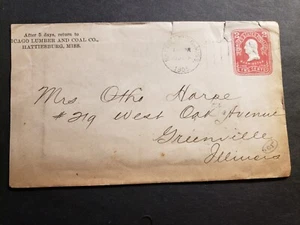 After 5 days, return to
CHICAGO LUMBER AND COAL CO.,
HATTIESBURG, MISS.
Mrs Otho Harpe
#219 West Oak Avenue
Greenville
Illinois